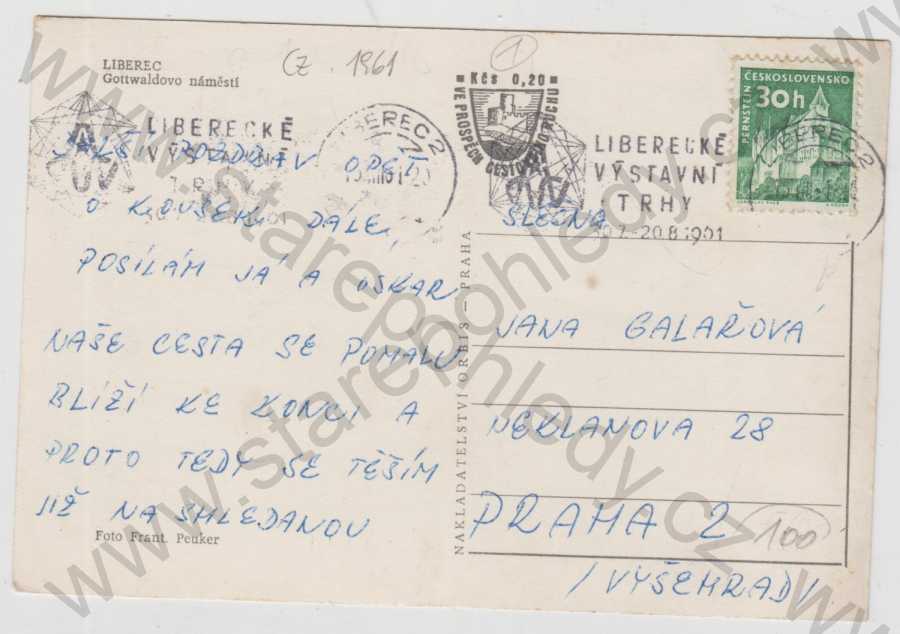 LIBEREC
Gottwaldovo náměstí
CZ 1961
1
LIBERECKÉ
VÝSTAVNÍ
TRHY
LIBEREC 2
Kčs 0,20
VE PROSPĚCH CESTOVNÍHO RUCHU
LIBERECKÉ
VÝSTAVNÍ
TRHY
20.8.1961
ČESKOSLOVENSKO
PERNŠTEJN
30h
LIBEREC 2
DALŠÍ POZDRAV OPĚT
O KOUSEK DÁLE,
POSÍLÁM JÁ A OSKAR
NAŠE CESTA SE POMALU
BLÍŽÍ KE KONCI A
PROTO TEDY SE TĚŠÍM
JIŽ NA SHLEDANOU
Foto Frant. Peuker
NAKLADATELSTVÍ ORBIS — PRAHA
SLEČNA
JANA GALAŘOVÁ
NEKLANOVA 28
PRAHA 2
/VYŠEHRAD/
100
www.starepohledy.cz